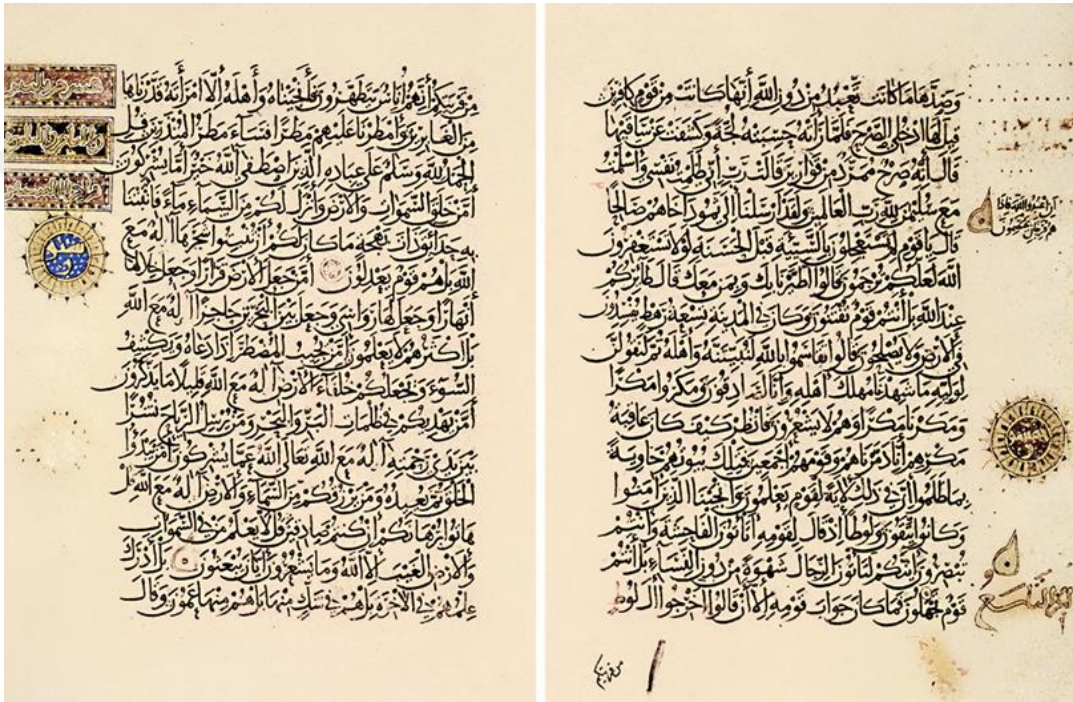 وصدها ما كانت تعبد من دون الله إنها كانت من قوم كافرين
قيل لها ادخلي الصرح فلما رأته حسبته لجة وكشفت عن ساقيها
قال إنه صرح ممرد من قوارير قالت رب إني ظلمت نفسي وأسلمت
مع سليمن لله رب العالمين ولقد أرسلنا إلى ثمود أخاهم صالحا
أن اعبدوا الله فإذا
هم فريقان يختصمون
قال يا قوم لم تستعجلون بالسيئة قبل الحسنة لولا تستغفرون
الله لعلكم ترحمون قالوا اطيرنا بك وبمن معك قال طائركم
عند الله بل أنتم قوم تفتنون وكان في المدينة تسعة رهط يفسدون
في الأرض ولا يصلحون قالوا تقاسموا بالله لنبيتنه وأهله ثم لنقولن
لوليه ما شهدنا مهلك أهله وإنا لصادقون ومكروا مكرا
ومكرنا مكرا وهم لا يشعرون فانظر كيف كان عاقبة
مكرهم أنا دمرناهم وقومهم أجمعين فتلك بيوتهم خاوية
بما ظلموا إن في ذلك لآية لقوم يعلمون وأنجينا الذين آمنوا
وكانوا يتقون ولوطا إذ قال لقومه أتأتون الفاحشة وأنتم
تبصرون أئنكم لتأتون الرجال شهوة من دون النساء بل أنتم
قوم تجهلون فما كان جواب قومه إلا أن قالوا أخرجوا آل لوط
من قريتكم
من قريتكم إنهم أناس يتطهرون فأنجيناه وأهله إلا امرأته قدرناها
من الغابرين وأمطرنا عليهم مطرا فساء مطر المنذرين قل
الحمد لله وسلم على عباده الذين اصطفى الله خير أما يشركون
أمن خلق السموات والأرض وأنزل لكم من السماء ماء فأنبتنا
به حدائق ذات بهجة ما كان لكم أن تنبتوا شجرها أإله مع
الله بل هم قوم يعدلون أمن جعل الأرض قرارا وجعل خلالها
أنهارا وجعل لها رواسي وجعل بين البحرين حاجزا أإله مع الله
بل أكثرهم لا يعلمون أمن يجيب المضطر إذا دعاه ويكشف
السوء ويجعلكم خلفاء الأرض أإله مع الله قليلا ما يذكرون
أمن يهديكم في ظلمات البر والبحر ومن يرسل الرياح نشرا
بين يدي رحمته أإله مع الله تعالى الله عما يشركون أمن يبدؤا
الخلق ثم يعيده ومن يرزقكم من السماء والأرض أإله مع الله قل
هاتوا برهانكم إن كنتم صادقين قل لا يعلم من في السموات
والأرض الغيب إلا الله وما يشعرون أيان يبعثون بل ادرك
علمهم في الآخرة بل هم في شك منها بل هم منها عمون وقال